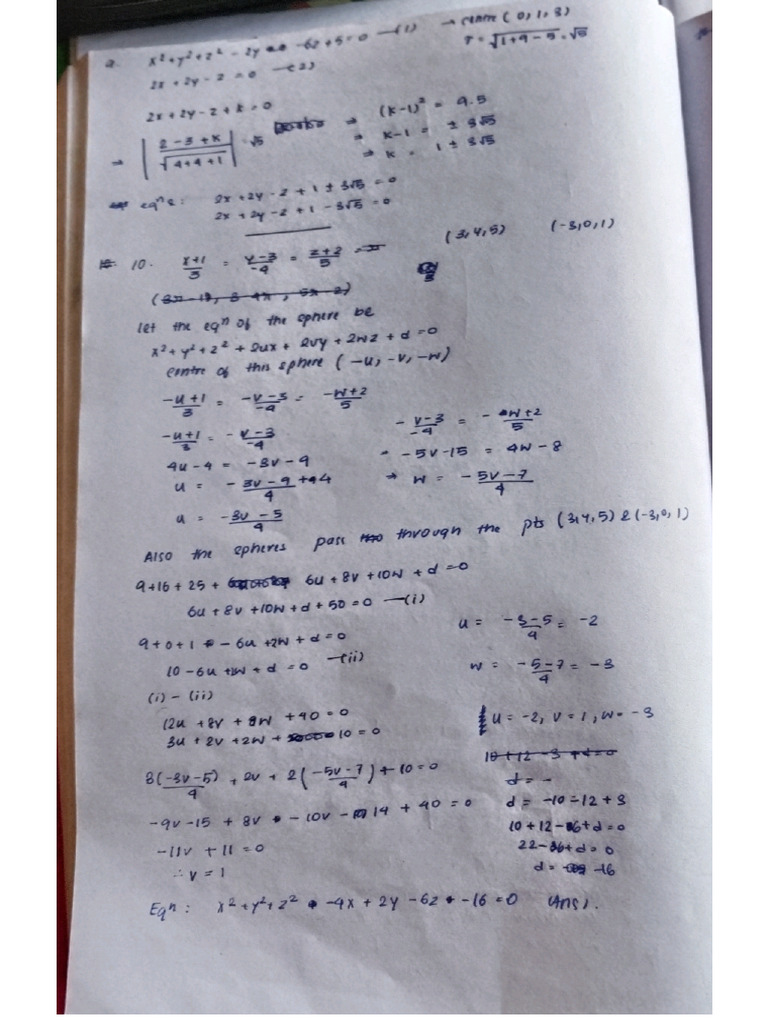 9. x² + y² + z² - 2y - 6z + 5 = 0 —(1) → centre (0, 1, 3)
2x + 2y - z = 0 —(2) r = √(1+9-5) = √5
2x + 2y - z + k = 0
⇒ |(2 - 3 + k)/√(4+4+1)| = √5 ⇒ (k-1)² = 9.5
⇒ k-1 = ± 3√5
⇒ k = 1 ± 3√5
eqⁿs: 2x + 2y - z + 1 ± 3√5 = 0
2x + 2y - z + 1 - 3√5 = 0
10. (x+1)/3 = (y-3)/-4 = (z+2)/5 (3,4,5) (-3,0,1)
let the eqⁿ of the sphere be
x² + y² + z² + 2ux + 2vy + 2wz + d = 0
centre of this sphere (-u, -v, -w)
(-u+1)/3 = (-v-3)/-4 = (-w+2)/5
(-u+1)/3 = (-v-3)/-4 (-v-3)/-4 = (-w+2)/5
4u - 4 = -3v - 9 -5v - 15 = 4w - 8
u = (-3v - 9 + 4)/4 ⇒ w = (-5v - 7)/4
u = (-3v - 5)/4
Also the spheres pass through the pts (3,4,5) & (-3,0,1)
9 + 16 + 25 + 6u + 8v + 10w + d = 0
6u + 8v + 10w + d + 50 = 0 —(i)
9 + 0 + 1 - 6u + 2w + d = 0
10 - 6u + 2w + d = 0 —(ii)
(i) - (ii)
12u + 8v + 8w + 40 = 0
3u + 2v + 2w + 10 = 0
3(-3v-5)/4 + 2v + 2((-5v-7)/4) + 10 = 0
-9v - 15 + 8v - 10v - 14 + 40 = 0
-11v + 11 = 0
∴ v = 1
u = (-3-5)/4 = -2
w = (-5-7)/4 = -3
u = -2, v = 1, w = -3
d = -
d = -10 - 12 + 3
10 + 12 - 6 + d = 0
22 - 6 + d = 0
d = -16
Eqⁿ: x² + y² + z² - 4x + 2y - 6z - 16 = 0 (Ans).